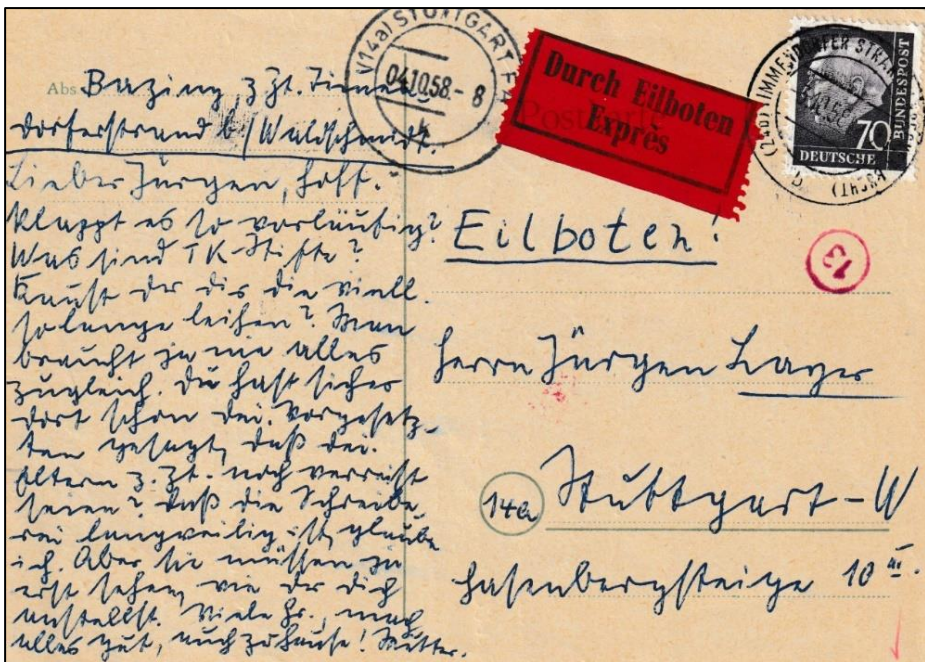 Abs. Bazing, z. Zt. Timmen-
dorferstrand b/ Waldschmidt.
Lieber Jürgen, hoff.
klappt es so vorläufig?
Was sind TK-Stifte?
Kannst du dir die viell.
so lange leihen? Man
braucht ja nie alles
zugleich. Du hast sicher
dort schon dei. Vorgesetz-
ten gesagt, daß dei.
Eltern z. Zt. noch verreist
seien? Daß die Schreibe-
rei langweilig ist, glaube
ich. Aber sie müssen zu-
erst sehen, wie du dich
anstellst. Viele Gr., mach
alles gut, auch zuhause! Mutter.
(14a) STUTTGART
04.10.58.-8
k
Durch Eilboten
Exprès
Postkarte
TIMMENDORFER STRAND
70
DEUTSCHE
BUNDESPOST
Eilboten!
13
Herrn Jürgen Layer
14a Stuttgart-W
Hasenbergsteige 10 III.